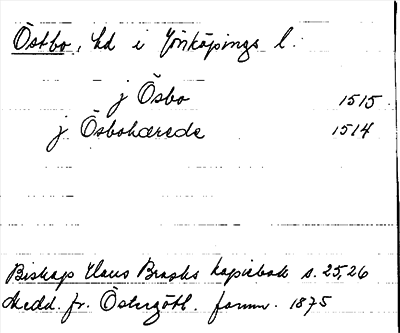 Östbo, hd i Jönköpings l.
j Ösbo 1515
j Ösbohærede 1514
Biskop Hans Brasks kopiebok s. 25, 26
Medd. fr. Östergötl. fornm. 1875